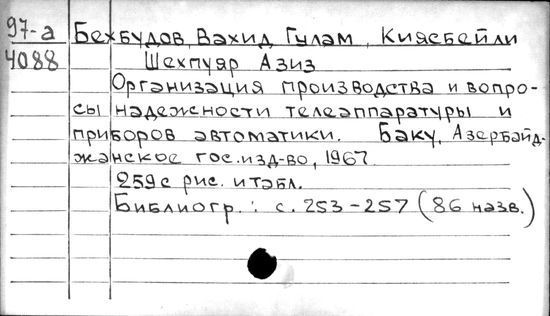 97-а Бехбудов, Вахид Гулам, Киясбейли
4088 Шехпуяр Азиз
Организация производства и вопро-
сы надежности телеаппаратуры и
приборов автоматики. Баку, Азербайд-
жанское гос.изд-во, 1967.
259с рис. и табл.
Библиогр.: с. 253-257 (86 назв.)